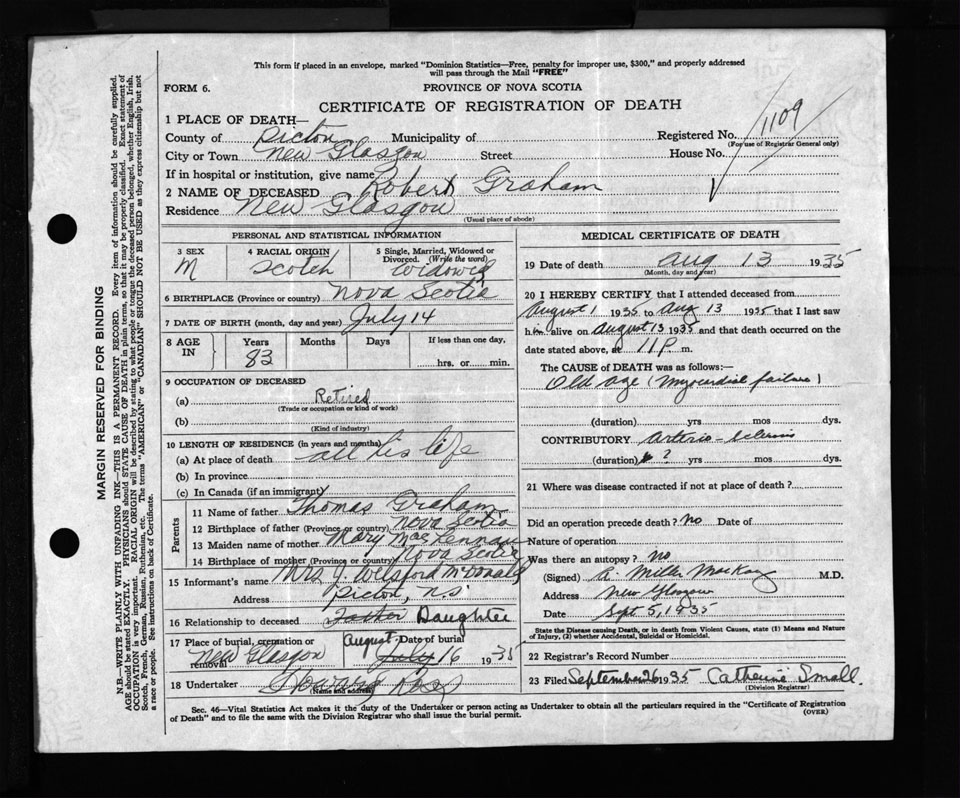 This form if placed in an envelope, marked "Dominion Statistics—Free, penalty for improper use, $300," and properly addressed
will pass through the Mail "FREE"
FORM 6.
PROVINCE OF NOVA SCOTIA
CERTIFICATE OF REGISTRATION OF DEATH
1 PLACE OF DEATH—
County of Pictou Municipality of Registered No. 1109
(For use of Registrar General only)
City or Town New Glasgow Street House No.
If in hospital or institution, give name
2 NAME OF DECEASED Robert Graham
Residence New Glasgow
(Usual place of abode)
PERSONAL AND STATISTICAL INFORMATION
3 SEX 4 RACIAL ORIGIN 5 Single, Married, Widowed or
Divorced. (Write the word)
M Scotch Widowed
6 BIRTHPLACE (Province or country) Nova Scotia
7 DATE OF BIRTH (month, day and year) July 14
8 AGE IN Years Months Days If less than one day,
83 hrs. or min.
9 OCCUPATION OF DECEASED
(a) Retired
(Trade or occupation or kind of work)
(b)
(Kind of industry)
10 LENGTH OF RESIDENCE (in years and months)
(a) At place of death all his life
(b) In province
(c) In Canada (if an immigrant)
Parents
11 Name of father Thomas Graham
12 Birthplace of father (Province or country) Nova Scotia
13 Maiden name of mother Mary MacLennan
14 Birthplace of mother (Province or country) Nova Scotia
15 Informant's name Mrs J Welsford McDonald
Address Pictou, NS
16 Relationship to deceased Foster Daughter
17 Place of burial, cremation or
removal New Glasgow
Date of burial
August July 16 1935
18 Undertaker
(Name and address)
MEDICAL CERTIFICATE OF DEATH
19 Date of death Aug 13 1935
(Month, day and year)
20 I HEREBY CERTIFY that I attended deceased from
August 1 1935 to Aug 13 1935 that I last saw
him alive on August 13 1935 and that death occurred on the
date stated above, at 11 P. m.
The CAUSE of DEATH was as follows:—
Old age (myocardial failure)
(duration) yrs mos dys.
CONTRIBUTORY Arterio-sclerosis
(duration) ? yrs mos dys.
21 Where was disease contracted if not at place of death?
Did an operation precede death? No Date of
Nature of operation
Was there an autopsy? No
(Signed) R. Miller MacKay M.D.
Address New Glasgow
Date Sept 5, 1935
State the Disease causing Death, or in death from Violent Causes, state (1) Means and Nature
of Injury, (2) whether Accidental, Suicidal or Homicidal.
22 Registrar's Record Number
23 Filed September 26 1935 Catherine Small.
(Division Registrar)
Sec. 46—Vital Statistics Act makes it the duty of the Undertaker or person acting as Undertaker to obtain all the particulars required in the "Certificate of Registration
of Death" and to file the same with the Division Registrar who shall issue the burial permit.
(OVER)
MARGIN RESERVED FOR BINDING
N.B.—WRITE PLAINLY WITH UNFADING INK—THIS IS A PERMANENT RECORD. Every item of information should be carefully supplied.
AGE should be stated EXACTLY. PHYSICIANS should STATE CAUSE OF DEATH in plain terms, so that it may be properly classified. Exact statement of
OCCUPATION is very important. RACIAL ORIGIN will be described by stating to what people or tongue the deceased person belonged, whether English, Irish,
Scotch, French, German, Russian, Ruthenian, etc. The terms "AMERICAN" or "CANADIAN" SHOULD NOT BE USED as they express citizenship but not
a race or people. See instructions on back of Certificate.